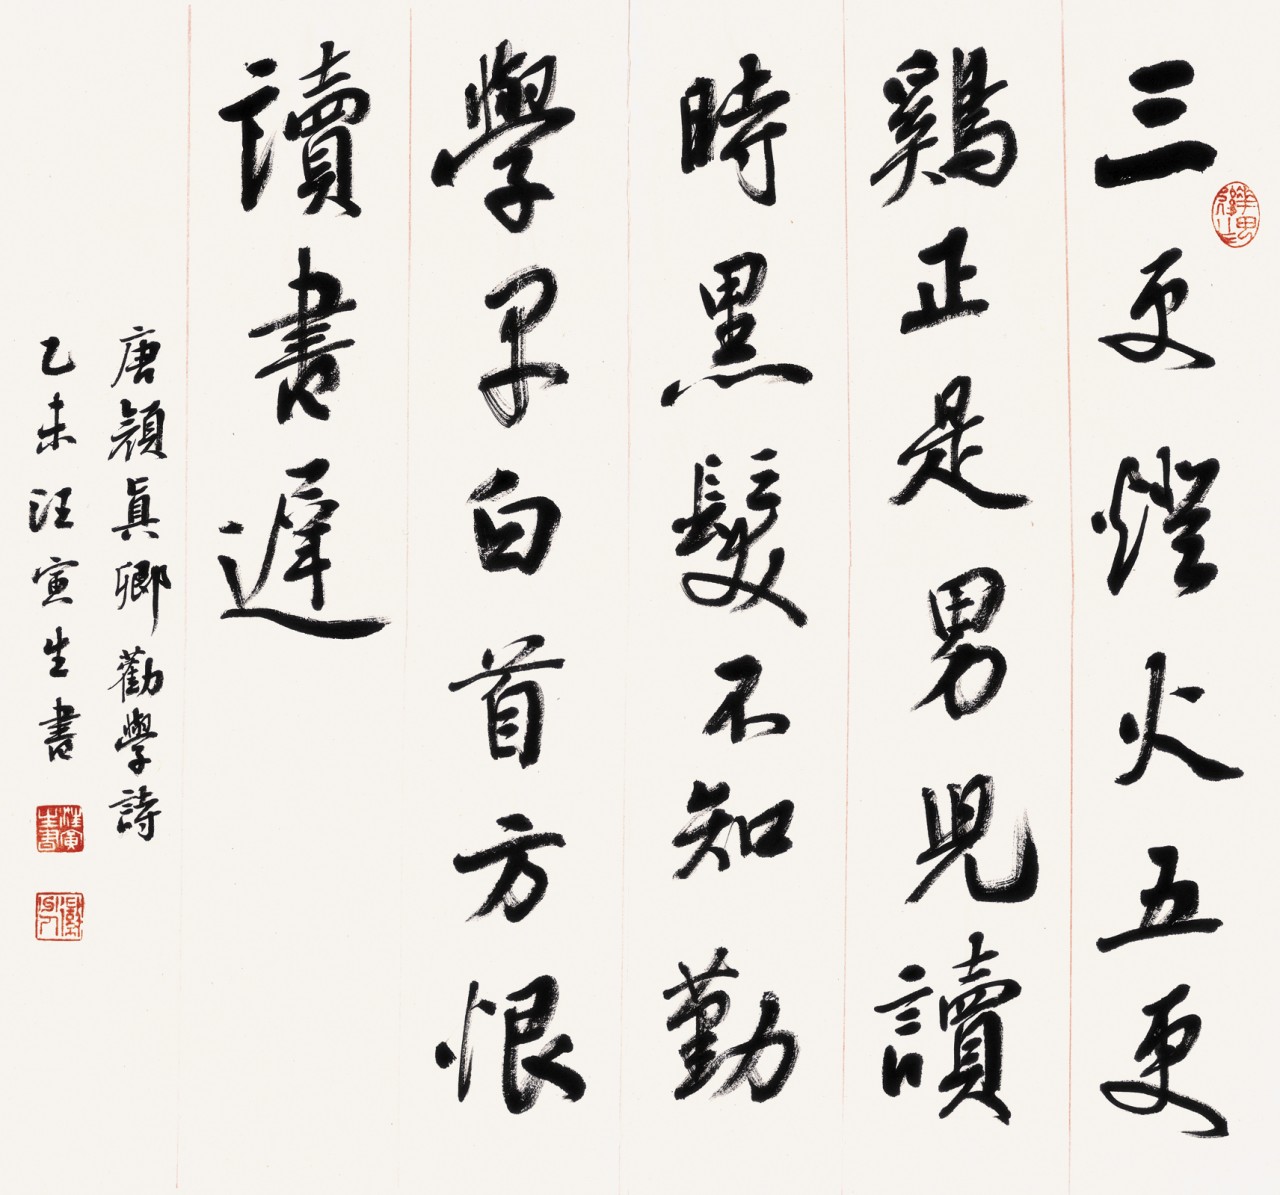 三更燈火五更
鷄正是男兒讀
時黑髮不知勤
學早白首方恨
讀書遲
唐顏真卿勸學詩
乙未汪寅生書
汪寅生書